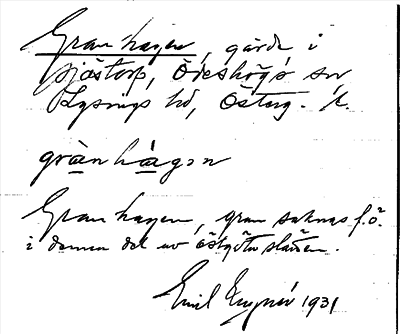 Granhagen, gärde i
Sjöstorp, Ödeshögs sn
Lysings hd, Östg. l.
grànhàgan
Granhagen, gran saknas f.ö.
i denna del av östgötaslätten.
Emil 1931